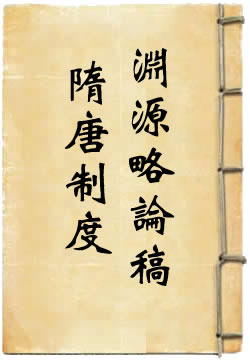 隋唐制度
淵源略論稿